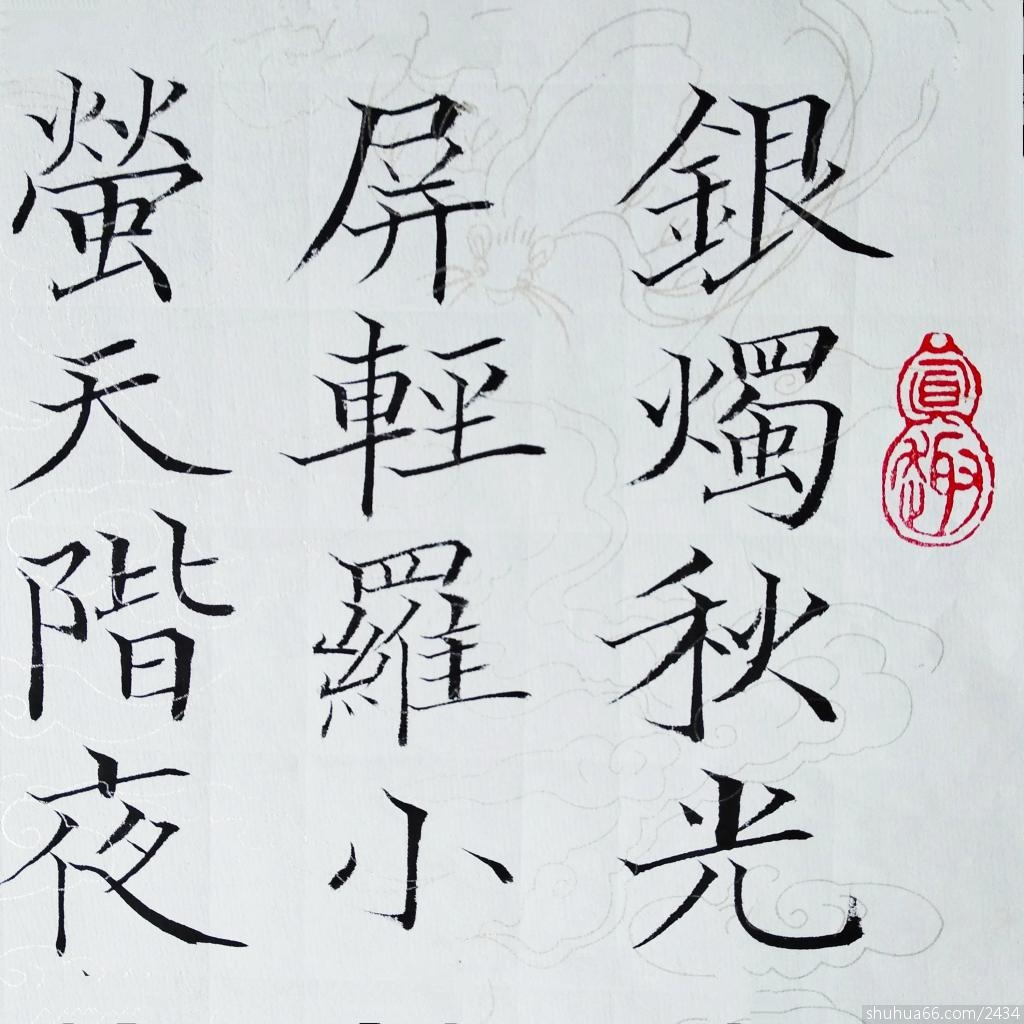 銀燭秋光
屏輕羅小
螢天階夜
真趣
shuhua66.com/2434